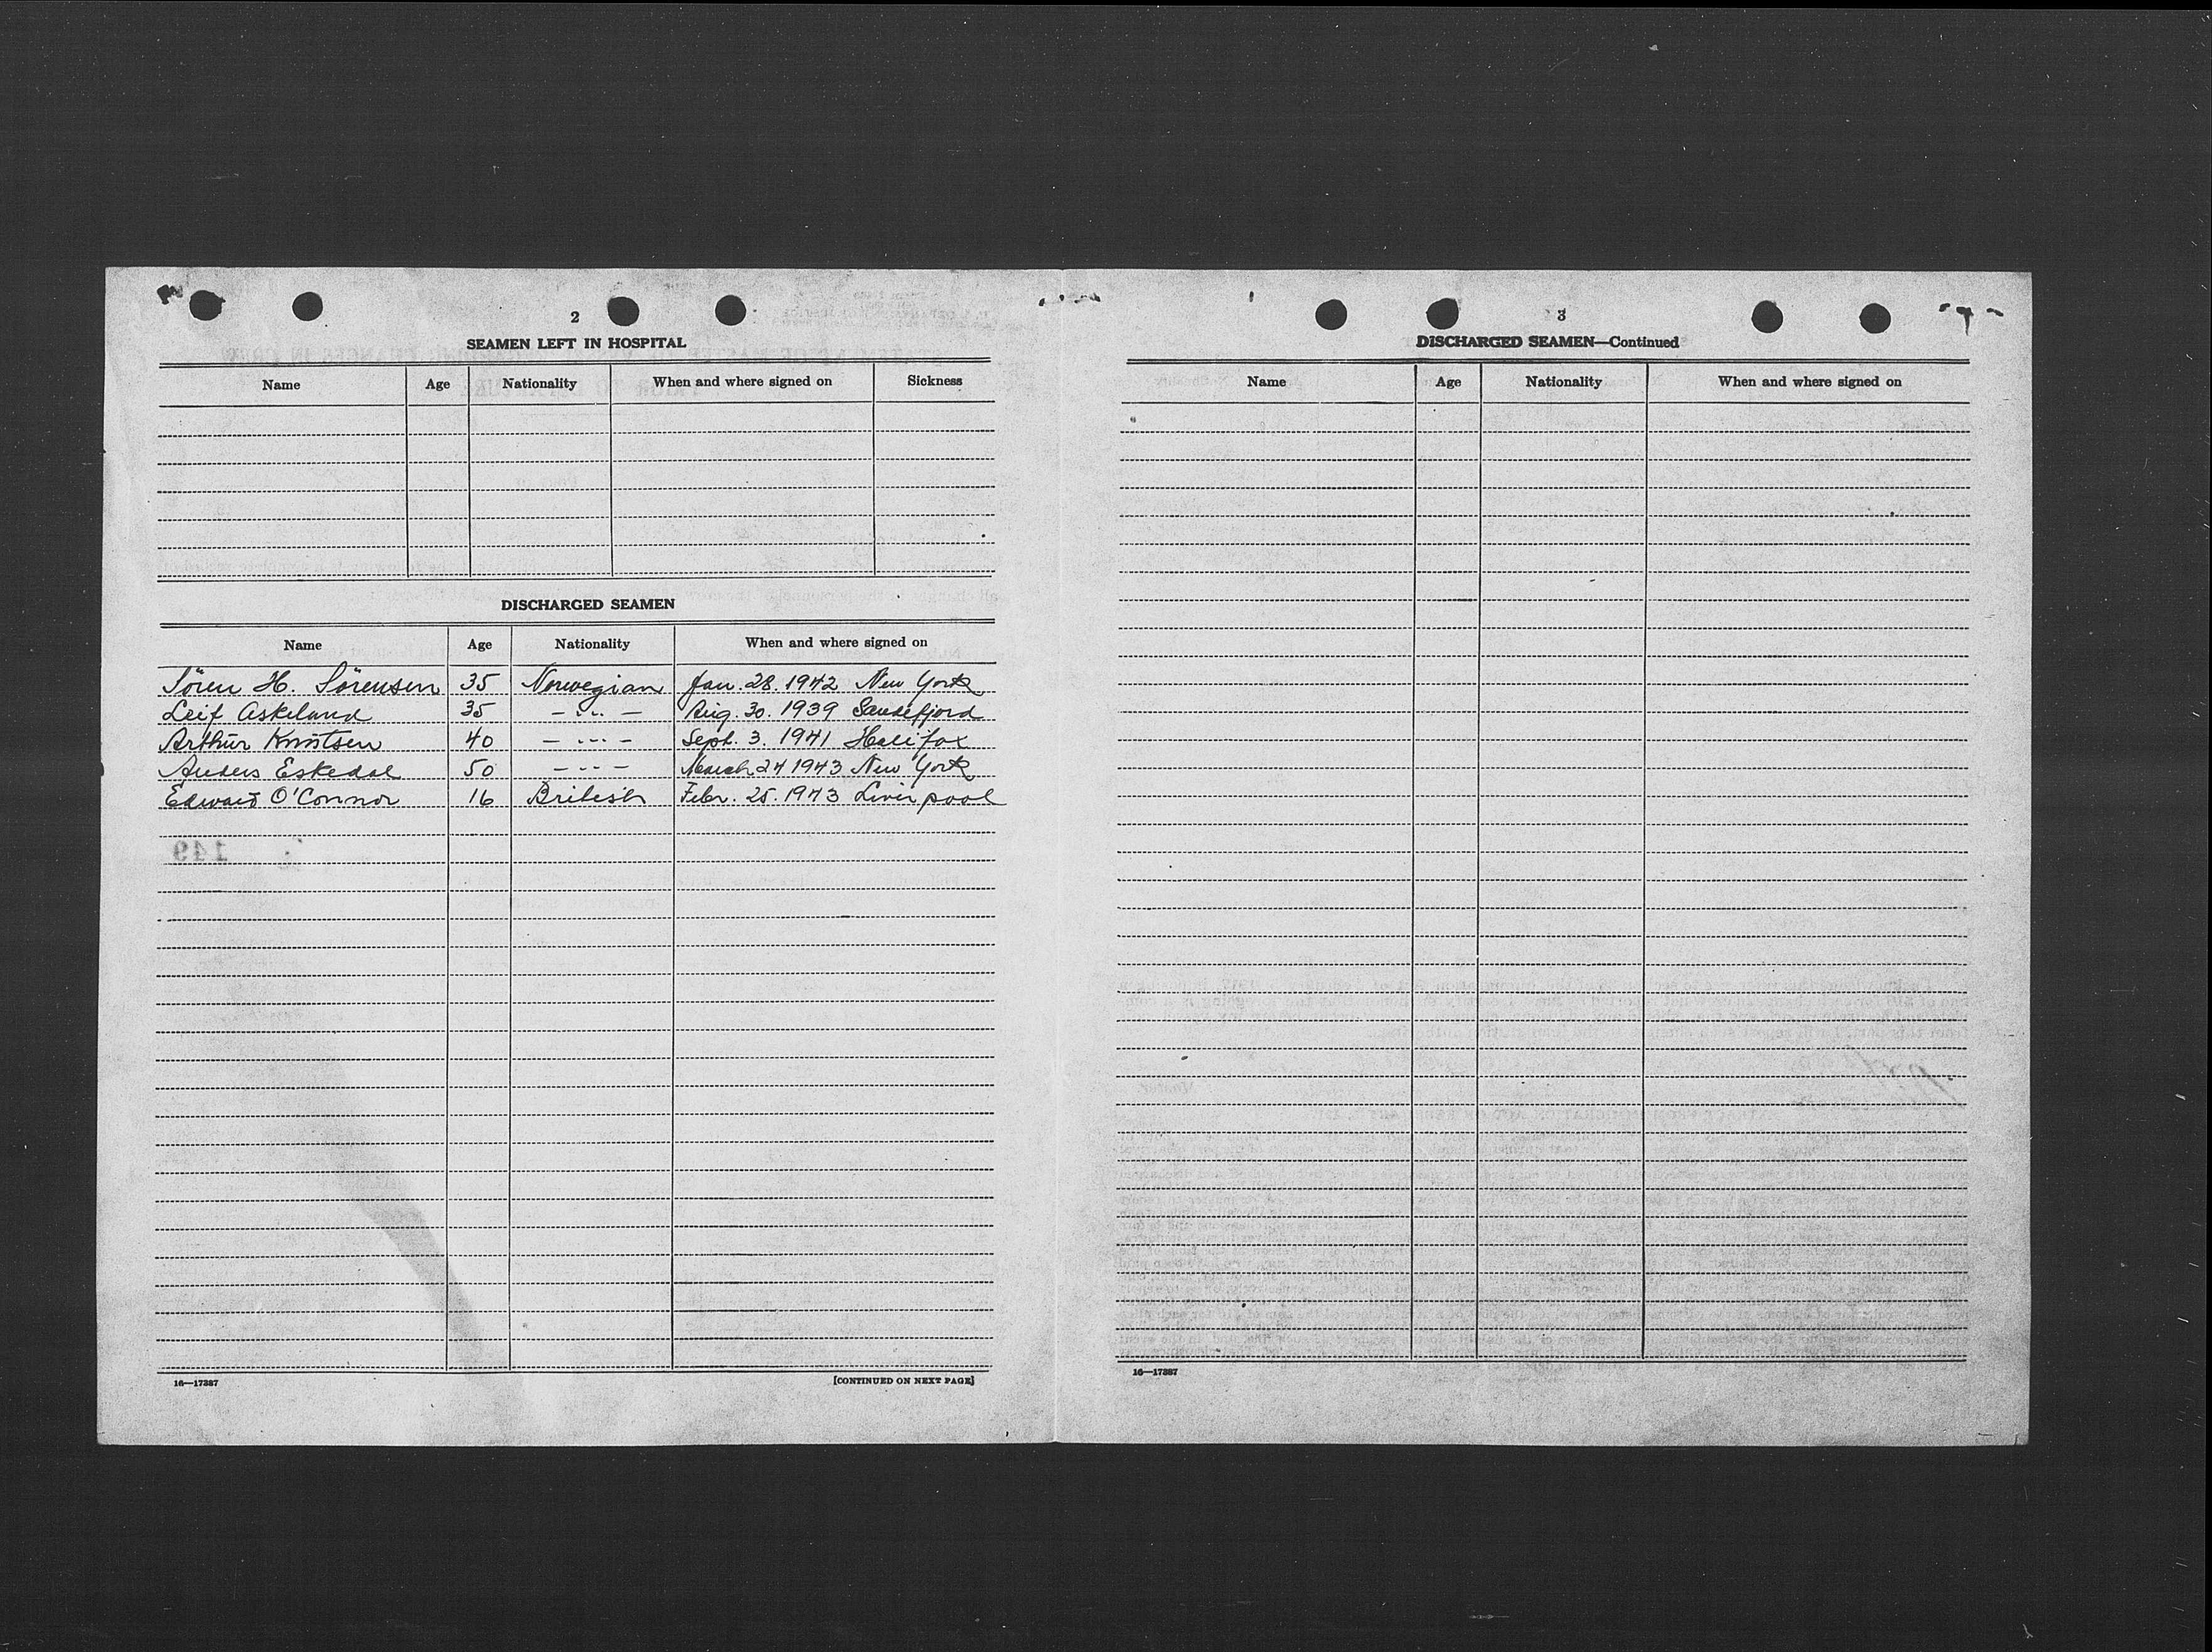 2
SEAMEN LEFT IN HOSPITAL
Name Age Nationality When and where signed on Sickness
DISCHARGED SEAMEN
Name Age Nationality When and where signed on
Sören H. Sörensen 35 Norwegian Jan. 28. 1942 New York
Leif Askeland 35 — „ — Aug. 30. 1939 Sandefjord
Arthur Knutsen 40 — „ — Sept. 3. 1941 Halifax
Anders Eskedal 50 — „ — March 24 1943 New York
Edward O'Connor 16 British Febr. 25. 1943 Liverpool
149
16—17387
[CONTINUED ON NEXT PAGE]
3
DISCHARGED SEAMEN—Continued
Name Age Nationality When and where signed on
16—17387